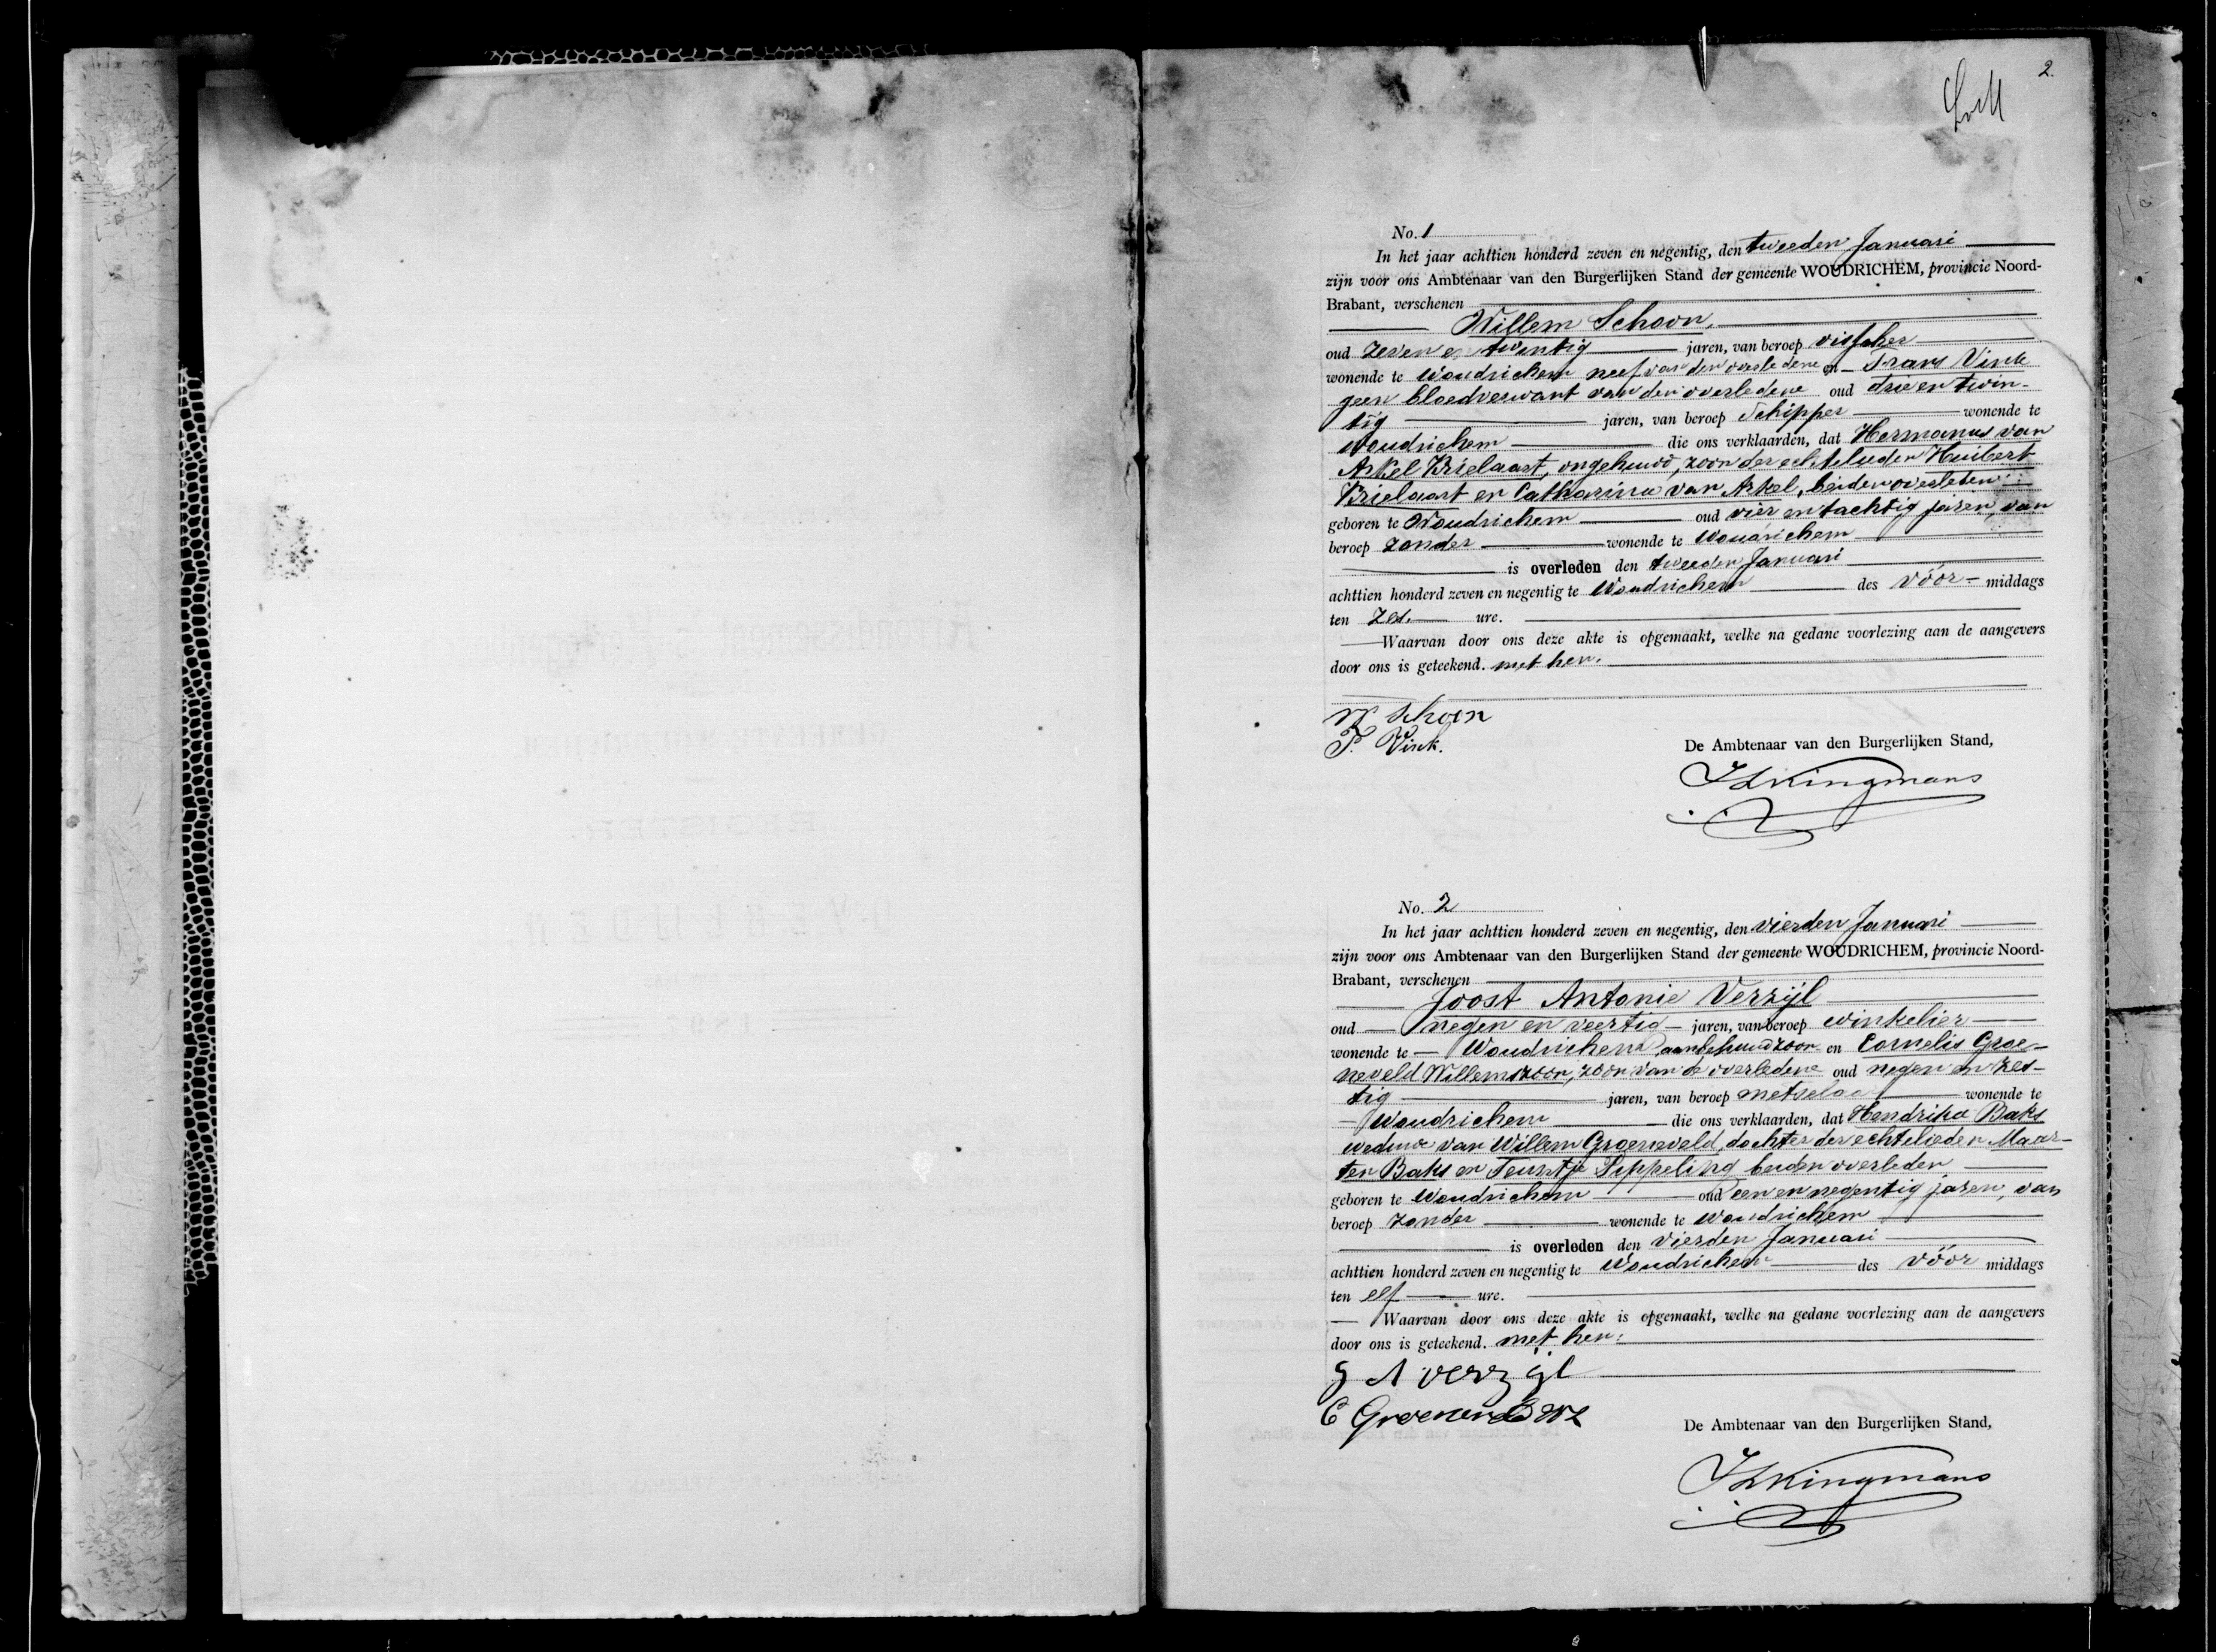 2.
No. 1
In het jaar achttien honderd zeven en negentig, den tweeden Januari
zijn voor ons Ambtenaar van den Burgerlijken Stand der gemeente WOUDRICHEM, provincie Noord-
Brabant, verschenen
Willem Schoon,
oud zeven en twintig jaren, van beroep visscher
wonende te Woudrichem neef van den overledene en Frans Vink
geen bloedverwant van den overledene oud drie en twin-
tig jaren, van beroep Schipper wonende te
Woudrichem die ons verklaarden, dat Hermanus van
Arkel Brielaart, ongehuwd, zoon der echtelieden Huibert
Brielaart en Catharina van Arkel, beiden overleden
geboren te Woudrichem oud vier en tachtig jaren, van
beroep zonder wonende te Woudrichem
is overleden den tweeden Januari
achttien honderd zeven en negentig te Woudrichem des vóór- middags
ten zes ure.
Waarvan door ons deze akte is opgemaakt, welke na gedane voorlezing aan de aangevers
door ons is geteekend. met hen.
W Schoon
F. Vink.
De Ambtenaar van den Burgerlijken Stand,
Kingmans
No. 2
In het jaar achttien honderd zeven en negentig, den vierden Januari
zijn voor ons Ambtenaar van den Burgerlijken Stand der gemeente WOUDRICHEM, provincie Noord-
Brabant, verschenen
Joost Antonie Verzijl
oud negen en veertig jaren, van beroep winkelier
wonende te Woudrichem, aanbehuwdzoon en Cornelis Groe-
neveld Willemszoon, zoon van de overledene oud negen en zes-
tig jaren, van beroep metselaar wonende te
Woudrichem die ons verklaarden, dat Hendrika Baks
weduwe van Willem Groeneveld, dochter der echtelieden Maar-
ten Baks en Teuntje Sippeling beiden overleden
geboren te Woudrichem oud een en negentig jaren, van
beroep zonder wonende te Woudrichem
is overleden den vierden Januari
achttien honderd zeven en negentig te Woudrichem des vóór middags
ten elf ure.
Waarvan door ons deze akte is opgemaakt, welke na gedane voorlezing aan de aangevers
door ons is geteekend. met hen.
J A verzijl
C Groeneveld WZ
De Ambtenaar van den Burgerlijken Stand,
Kingmans